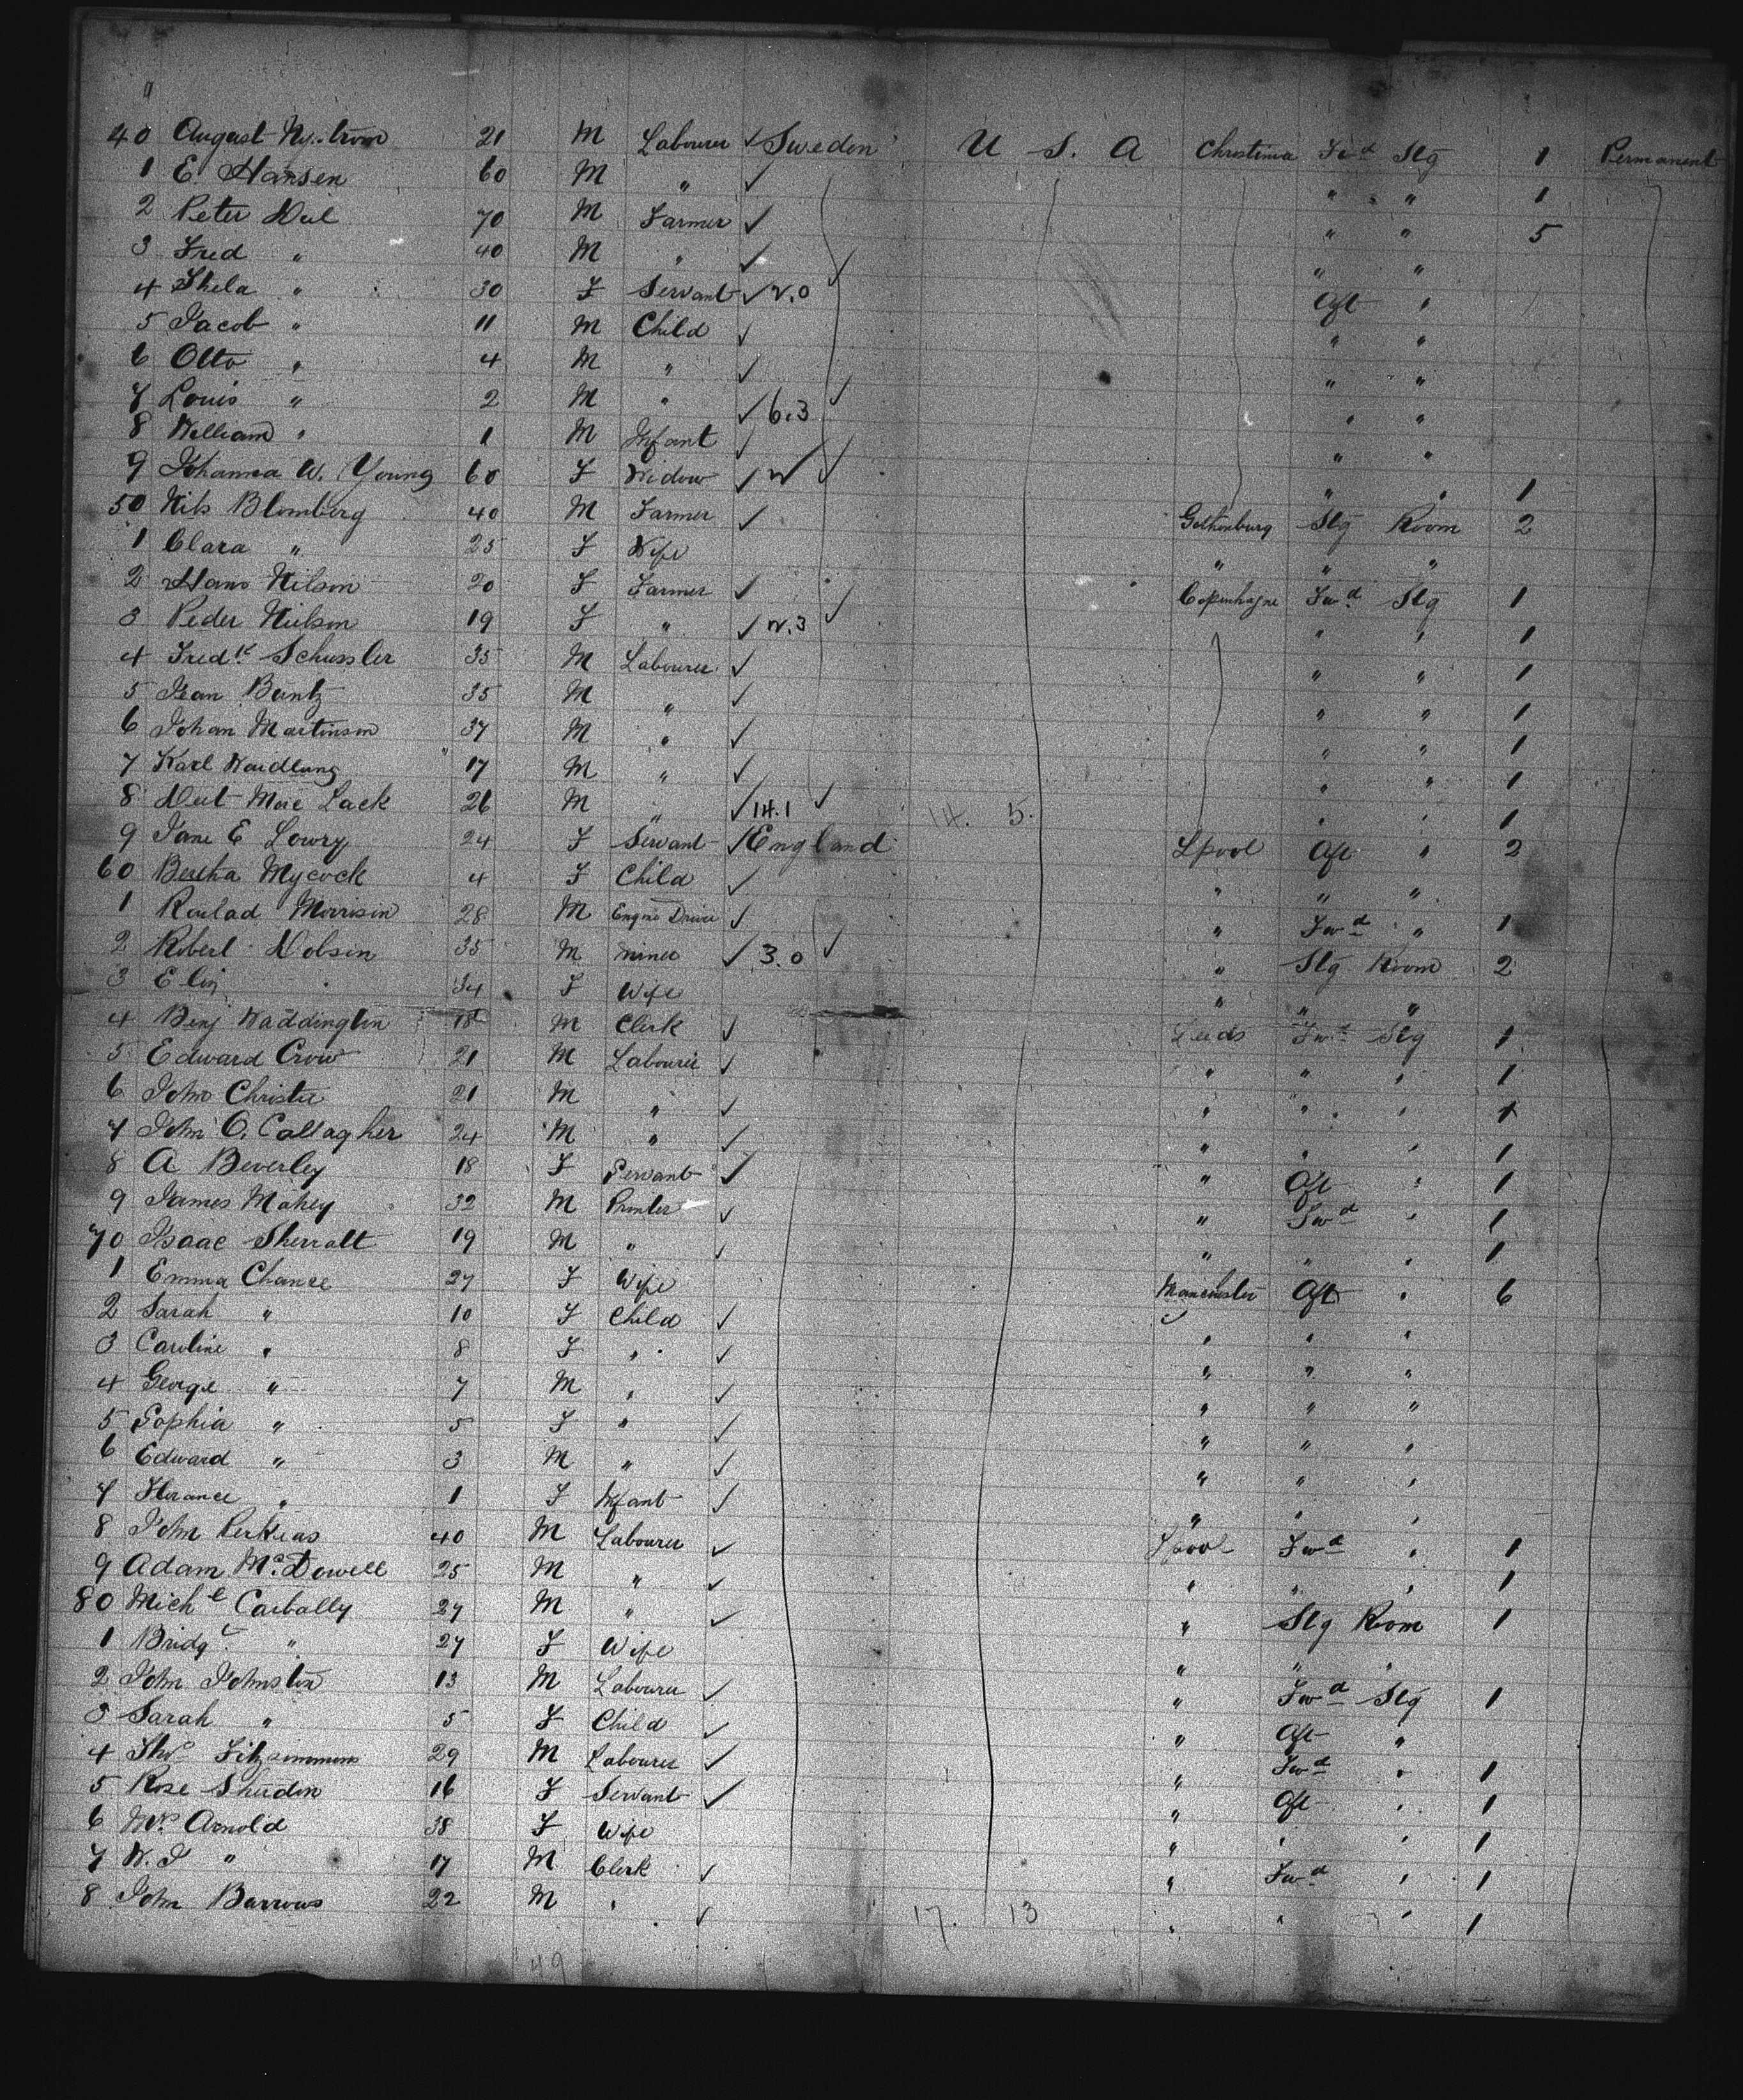 40 August Nystrom 21 M Labourer ✓ Sweden U S. A Christinia Fwd Stg 1 Permanent
1 E. Hansen 60 M " ✓ " " 1
2 Peter Dul 70 M Farmer ✓ " " 5
3 Fred " 40 M " ✓ " "
4 Thela " 30 F Servant ✓ 2.0 Aft "
5 Jacob " 11 M Child ✓ " "
6 Otto " 4 M " ✓ " "
7 Louis " 2 M " ✓ 6.3 " "
8 William " 1 M Infant ✓ " "
9 Johanna W. Young 60 F Widow ✓ " " 1
50 Nils Blomberg 40 M Farmer ✓ Gothenburg Stg Room 2
1 Clara " 25 F Wife " " "
2 Hans Nilson 20 F Farmer ✓ Copenhagne Fwd Stg 1
3 Peder Nielson 19 F " ✓ 2.3 " " 1
4 Fredk Schussler 35 M Labourer ✓ " " 1
5 Jean Bantz 35 M " ✓ " " 1
6 Johan Martinson 37 M " ✓ " " 1
7 Karl Waidlung 17 M " ✓ " " 1
8 Mac Lack 26 M " ✓ 14.1 14. 5. " " 1
9 Jane E Lowry 24 F Servant ✓ England Lpool Aft " 2
60 Bertha Mycock 4 F Child ✓ " " "
1 Roulad Morrison 28 M Engine Driver ✓ " Fwd " 1
2 Robert Dobson 35 M miner ✓ 3.0 " Stg Room 2
3 Eliz 34 F Wife " " "
4 Benj Waddington 18 M Clerk ✓ Leeds Fwd Stg 1
5 Edward Crow 21 M Labourer ✓ " " " 1
6 John Christie 21 M " ✓ " " " 1
7 John O. Callagher 24 M " ✓ " " " 1
8 A Beverley 18 F Servant ✓ " Aft " 1
9 James Mahey 32 M Printer ✓ " Fwd " 1
70 Isaac Sherratt 19 M " ✓ " " " 1
1 Emma Chance 27 F Wife Manchester Aft " 6
2 Sarah " 10 F Child ✓ " " "
3 Caroline " 8 F " ✓ " " "
4 George " 7 M " ✓ " " "
5 Sophia " 5 F " ✓ " " "
6 Edward " 3 M " ✓ " " "
7 Florance " 1 F Infant ✓ " " "
8 John Perkias 40 M Labourer ✓ Lpool Fwd " 1
9 Adam McDowell 25 M " ✓ " " " 1
80 Michl Carbally 27 M " ✓ " Stg Room 1
1 Bridgt " 27 F Wife " " "
2 John Johnston 13 M Labourer ✓ " Fwd Stg 1
3 Sarah " 5 F Child ✓ " Aft "
4 Thos Fitzsimmons 29 M Labourer ✓ " Fwd " 1
5 Rose Sheridon 16 F Servant ✓ " Aft " 1
6 Mrs Arnold 38 F Wife " " " 1
7 W. J " 17 M Clerk ✓ " Fwd " 1
8 John Barrows 22 M " ✓ 17. 13 " " " 1
49